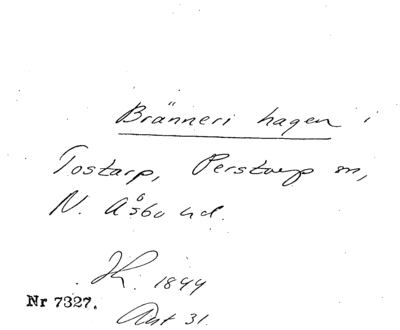 Bränneri hagen i
Tostarp, Perstorp sn,
N. Åsbo hd.
Jk. 1844
Nr 7327.
Akt 31.